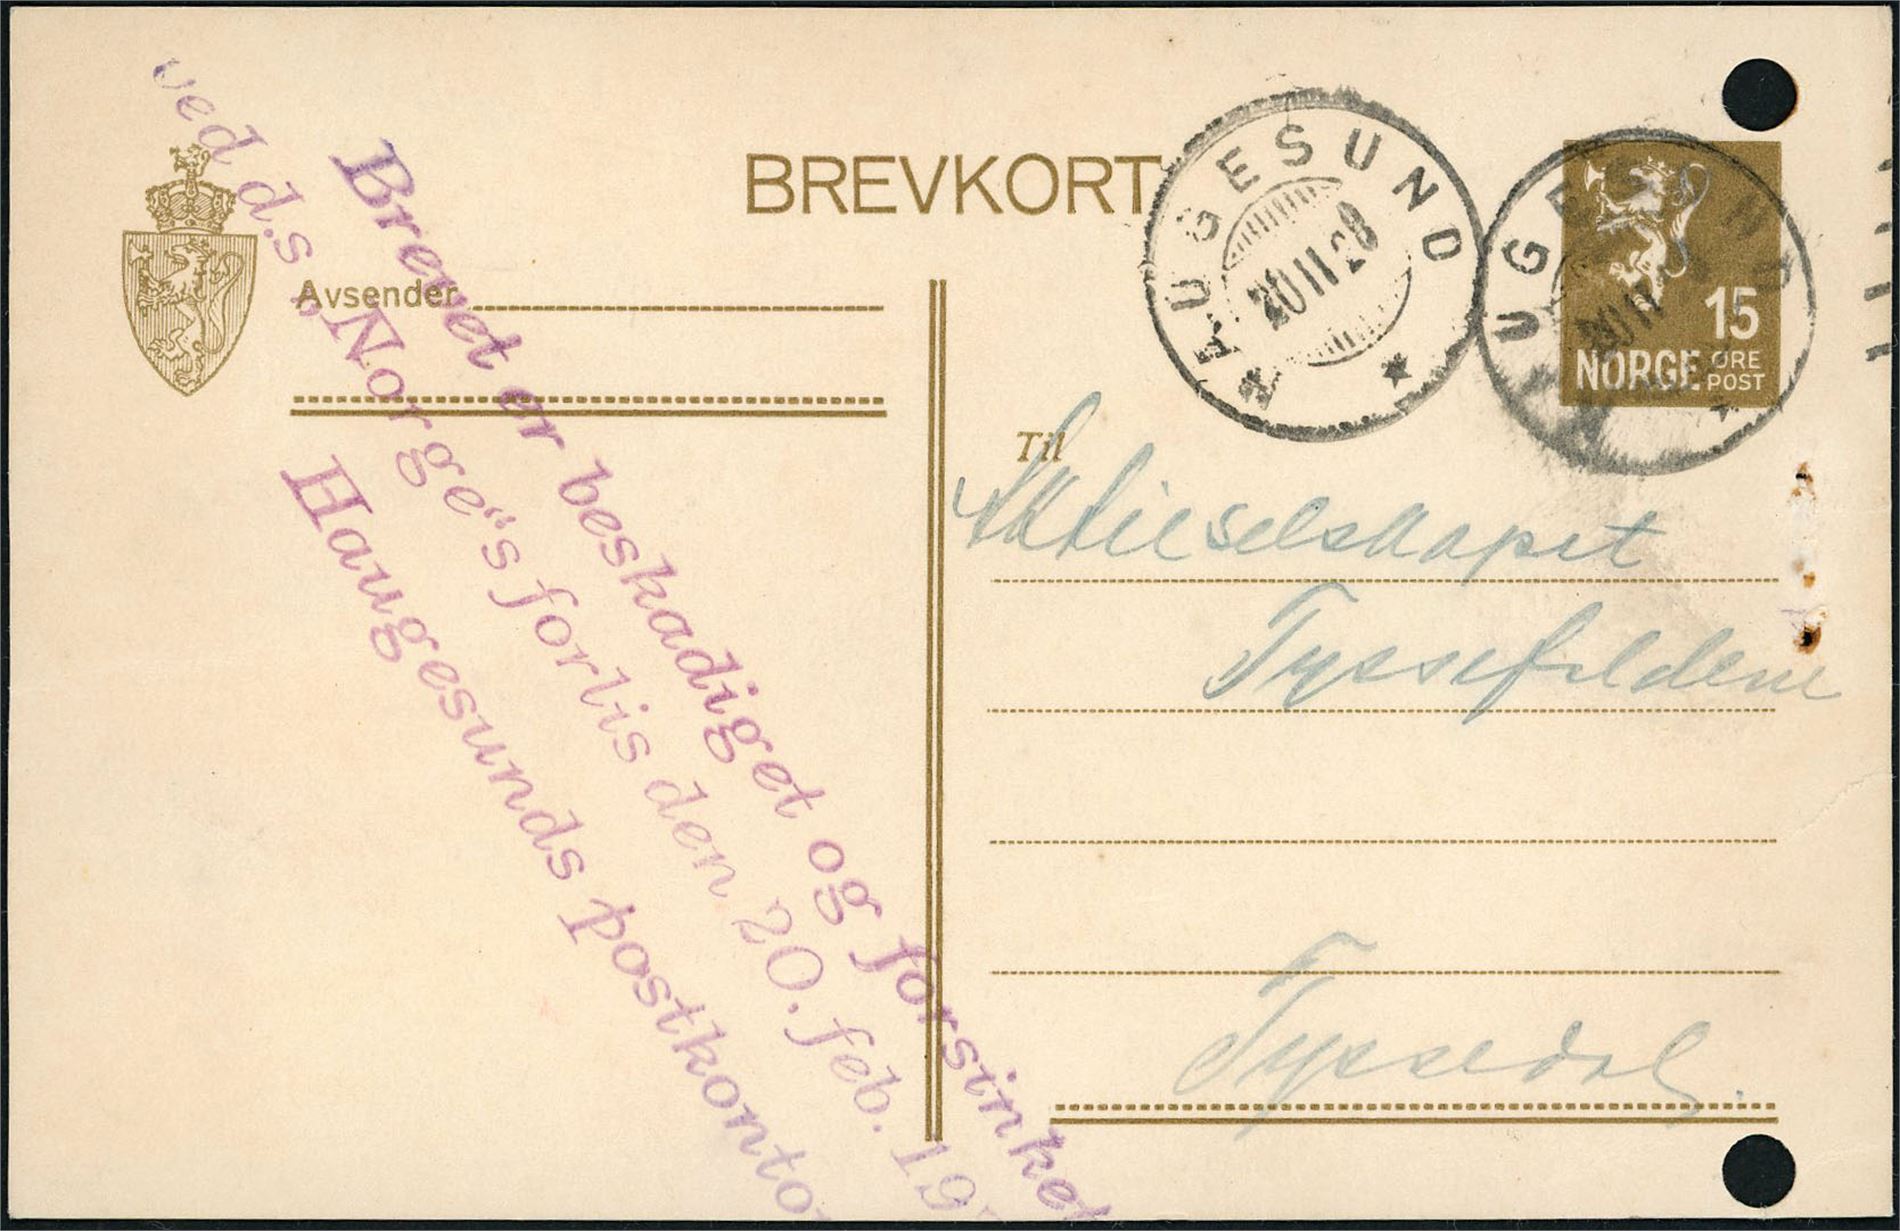 BREVKORT
Avsender
HAUGESUND
20 II 28
HAUGESUND
20 II
15
NORGE ØRE
POST
Til
Aktieselskapet
Tyssefaldene
Tyssedal.
Brevet er beskadiget og forsinket
ved d.s. „Norge“s forlis den 20. feb. 19
Haugesunds postkontor